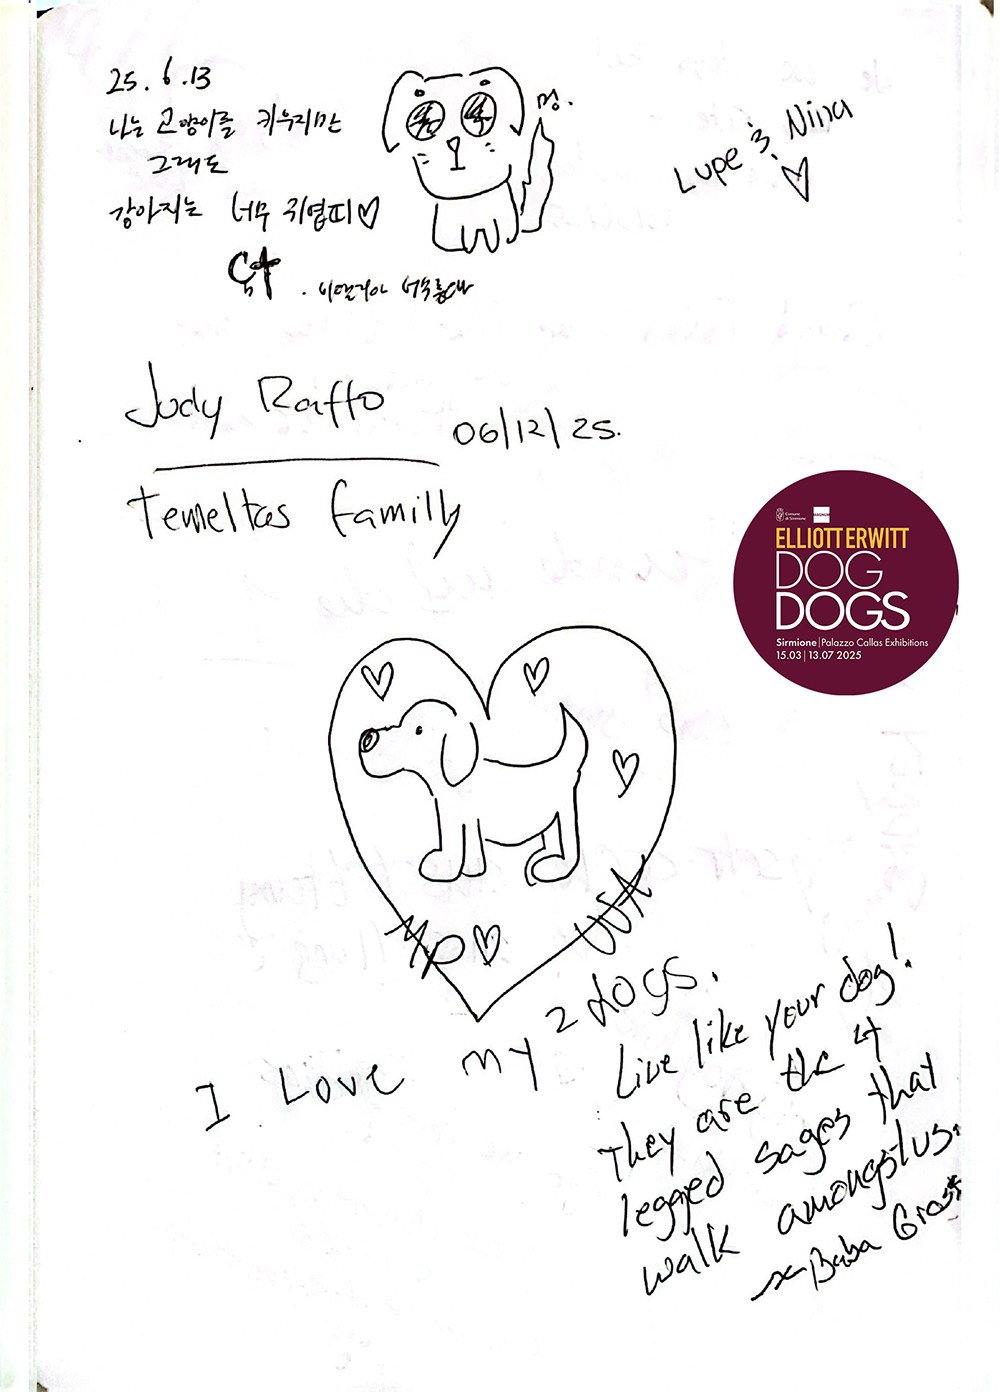 25.6.13
나는 고양이를 키우지만
그래도
강아지는 너무 귀엽띠♡
멍.
Lupe & Nina
♡
Judy Raffo
06/12/25.
Temeltas familly
Comune
di Sirmione
ELLIOTT ERWITT
DOG
DOGS
Sirmione | Palazzo Callas Exhibitions
15.03 | 13.07 2025
I Love my 2 dogs.
Live like your dog!
They are the 4
legged sages that
walk amongst us.
Baba Gross